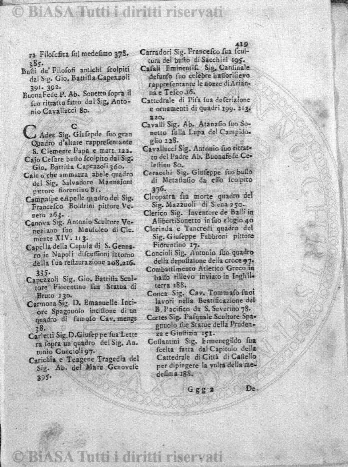 © BiASA Tutti i diritti riservati
419
ra Filosofica sul medesimo 378.
385.
Busti de' Filosofi antichi scolpiti
del Sig. Gio. Battista Capezzoli
391. 392.
Buonafede P. Ab. Sonetto sopra il
suo ritratto fatto dal Sig. Anto-
nio Cavallucci 80.
C
Cades Sig. Giuseppe suo gran
Quadro d'altare rappresentante
S. Clemente Papa e mart. 122.
Cajo Cesare busto scolpito dal Sig.
Gio. Battista Capezzoli 360.
Caino che ammazza abele quadro
del Sig. Salvadore
pittore fiorentino 81.
Campaspe e Apelle quadro del Sig.
Francesco pittore
neto 264.
Canova Sig. Antonio Scultore Ve-
neziano suo Mausoleo di Cle-
mente XIV. 113.
Capella della Capola di S. Genna-
ro in Napoli discussioni intorno
della sua restaurazione 208. 216.
335.
Capezzoli Sig. Gio. Battista Scul-
tore Fiorentino sua Statua di
Bruto 130.
Carmona Sig. D. Emanuelle Inci-
sore Spagnuolo incisione di un
quadro di
38.
Carletti Sig. D. Giuseppe sua Lette-
ra sopra un quadro del Sig. An-
tonio 197.
Cariclia e Teagene Tragedia del
Sig. Ab. del Mare Genovese
395.
Carradori Sig. Francesco sua scul-
tura del busto di Sacchini 195.
Casali Eminentiss. Sig. Cardinale
defunto suo celebre bassorilievo
rappresentante le nozze di Arian-
na e Teseo 16.
Cattedrale di Pisa sua descrizione
e ornamenti di quadri 199. 213.
220.
Cavalli Sig. Ab. Atanasio suo So-
netto sulla Lupa del Campido-
glio 228.
Cavallucci Sig. Antonio suo ritrat-
to del Padre Ab. Buonafede Ce-
lestino 80.
Ceracchi Sig. Giuseppe suo busto
di Metastasio da esso scolpito
376.
Cleopatra sua morte quadro del
Sig. Mazzuoli di Siena 250.
Clerico Sig. Inventore de' Balli in
Sonetto in suo elogio 40
Clorinda e Tancredi quadro del
Sig. Giuseppe Fabbroni pittore
Fiorentino 17.
Concioli Sig. Antonio suo quadro
della deposizione della croce 97.
Combattimento Atletico Greco in
basso rilievo inviato in Inghil-
terra 188.
Conca Sig. Cav. Tommaso suoi
lavori nella Beatificazione del
B. Pacifico da S. Severino 78.
Cortes Sig. Pasquale Scultore Spa-
gnuolo sue Statue della Pruden-
za e Giustizia 151.
Costantini Sig. Ermenegildo sua
scelta fatta dal Capitolo della
Cattedrale di Città di Castello
per dipingere la volta della me-
desima 188.
G g g 2
De.
© BiASA Tutti i diritti riservati